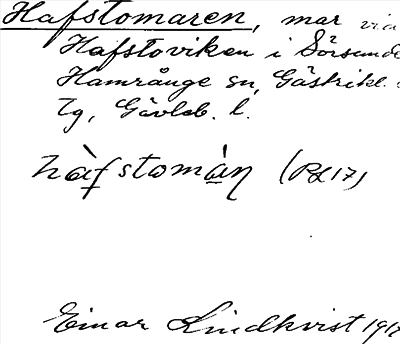 Hafstomaren, mar vid
Hafstoviken i Sörsunde
Hamrånge sn, Gästrikl.
Tg, Gävleb. l.
hàfstomàn (RL17)
Einar Lindkvist 191